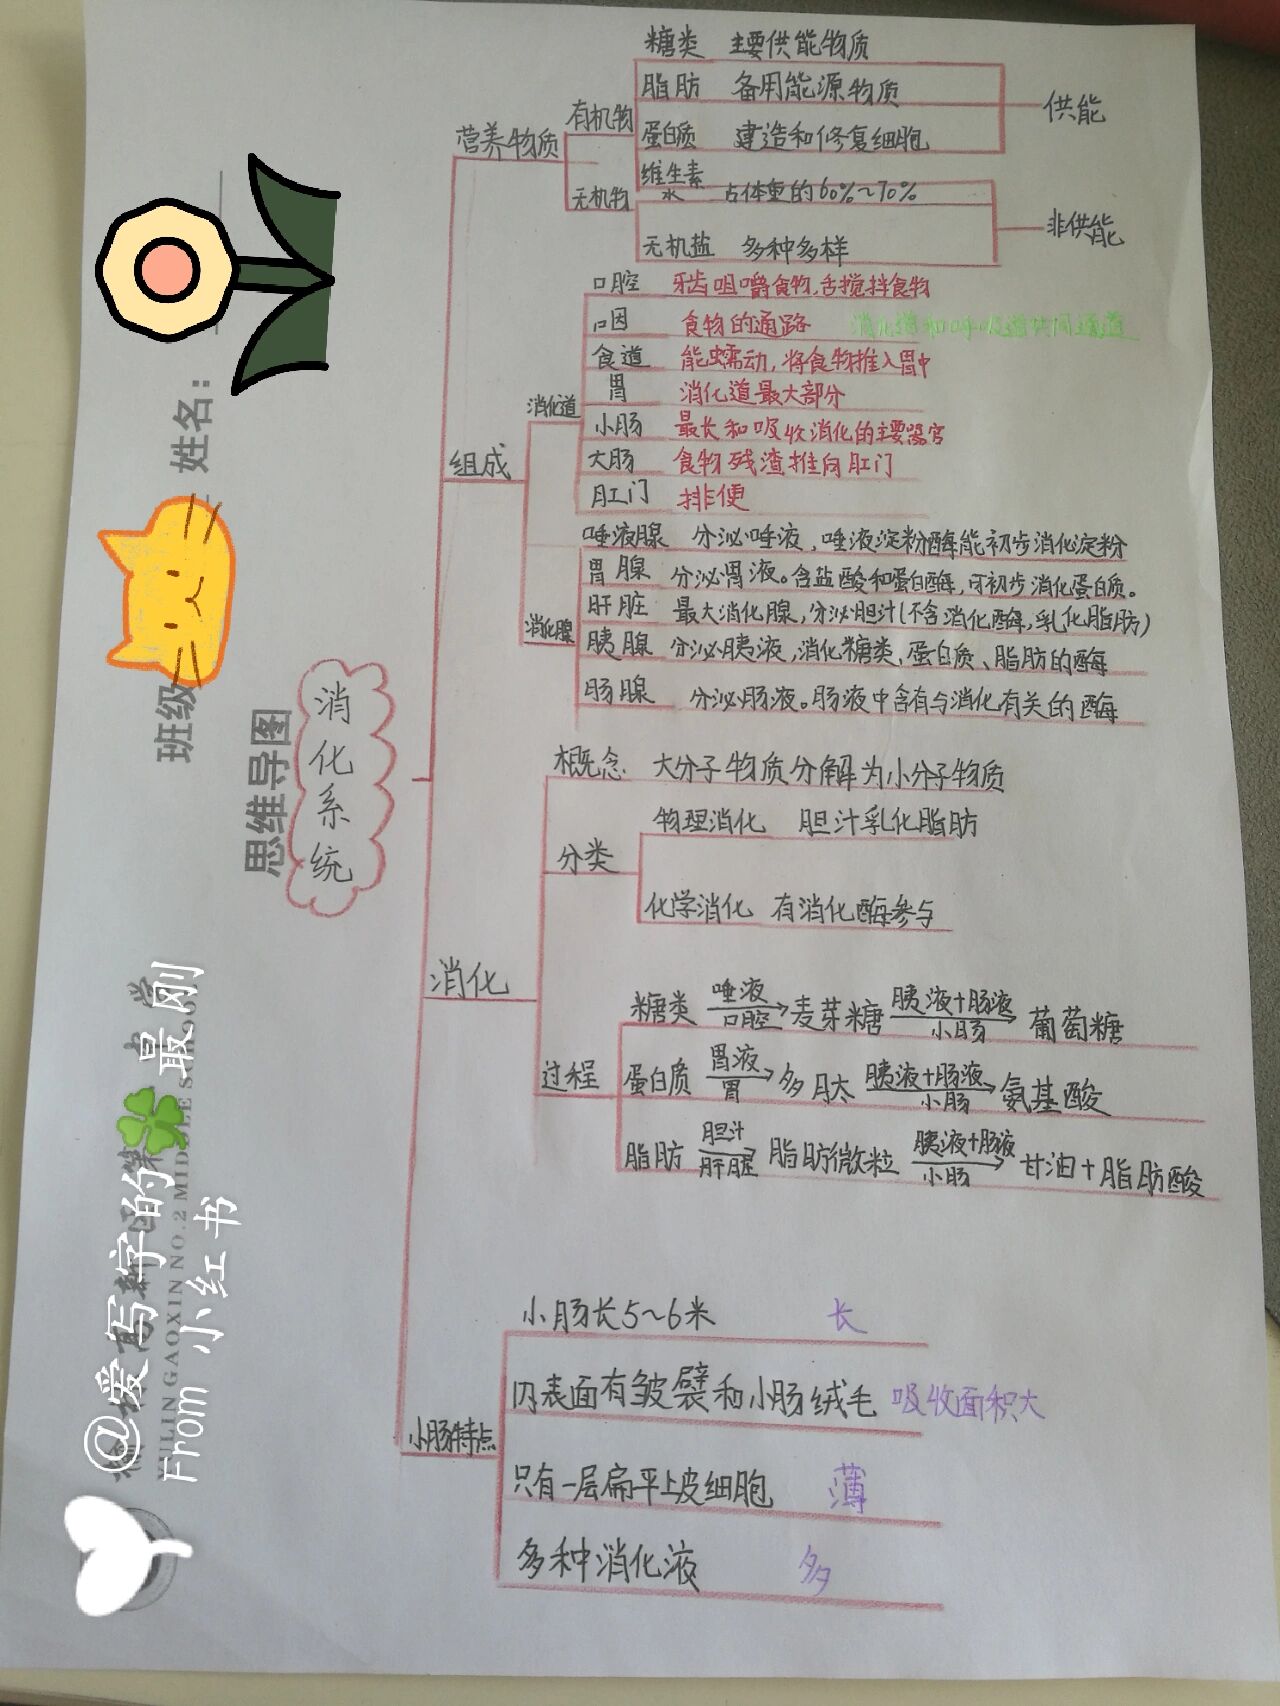 糖类 主要供能物质
脂肪 备用能源物质
供能
有机物
营养物质
蛋白质 建造和修复细胞
维生素
无机物
水 占体重的60%~70%
非供能
无机盐 多种多样
口腔 牙齿咀嚼食物,舌搅拌食物
口因 食物的通路 消化道和呼吸道共同通道
食道 能蠕动,将食物推入胃中
胃 消化道最大部分
消化道
小肠 最长和吸收消化的主要器官
组成
大肠 食物残渣推向肛门
肛门 排便
唾液腺 分泌唾液,唾液淀粉酶能初步消化淀粉
胃腺 分泌胃液。含盐酸和蛋白酶,可初步消化蛋白质。
肝脏 最大消化腺,分泌胆汁(不含消化酶,乳化脂肪)
消化腺
胰腺 分泌胰液,消化糖类、蛋白质、脂肪的酶
肠腺 分泌肠液。肠液中含有与消化有关的酶
姓名:
班级
思维导图
消化系统
概念 大分子物质分解为小分子物质
物理消化 胆汁乳化脂肪
分类
化学消化 有消化酶参与
消化
糖类 唾液 口腔 → 麦芽糖 胰液+肠液 小肠 → 葡萄糖
过程
蛋白质 胃液 胃 → 多肽 胰液+肠液 小肠 → 氨基酸
脂肪 胆汁 肝脏 → 脂肪微粒 胰液+肠液 小肠 → 甘油+脂肪酸
小肠长5~6米 长
内表面有皱襞和小肠绒毛 吸收面积大
小肠特点
只有一层扁平上皮细胞 薄
多种消化液 多
YULIN GAOXIN NO.2 MIDDLE
@爱写字的🍀最刚
From 小红书